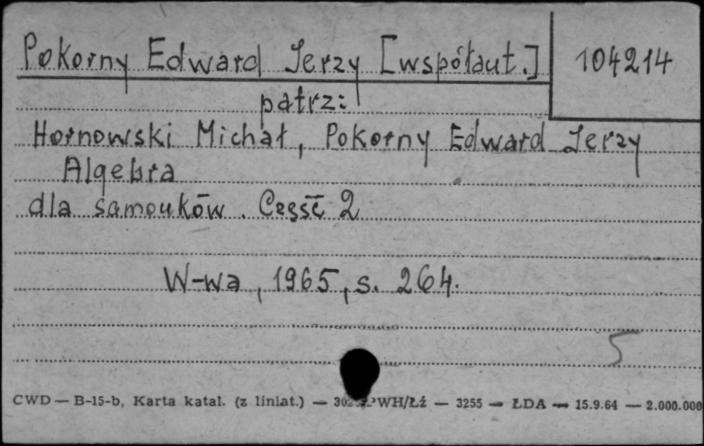 Pokorny Edward Jerzy [współaut.] 104214
patrz:
Hornowski Michał, Pokorny Edward Jerzy
Algebra
dla samouków. Część 2
W-wa, 1965, s. 264.
5
CWD — B-15-b, Karta katal. (z liniat.) — PWH/Łź — 3255 — ŁDA — 15.9.64 — 2.000.000